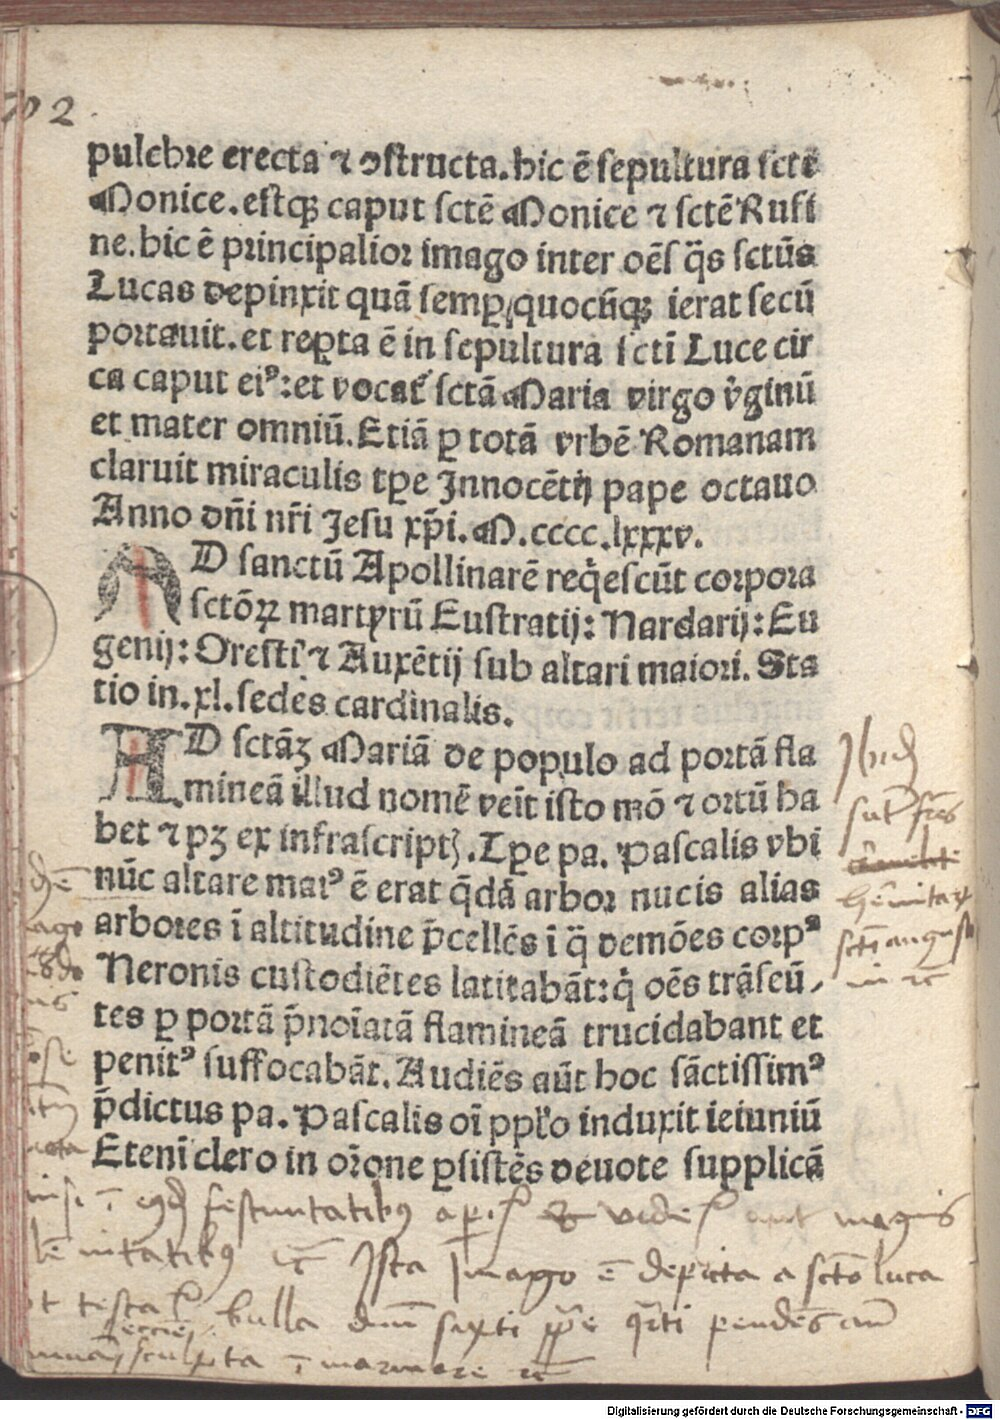 102
pulchre erecta ⁊ ꝯstructa. hic ē sepultura sctē
Monice. estqꝫ caput sctē Monice ⁊ sctē Rufi
ne. hic ē principalior imago inter oēs q̄s sctūs
Lucas depinxit quā semꝑ quocūqꝫ ierat secū
portauit. et reꝑta ē in sepultura scti Luce cir
ca caput eiꝰ: et vocat᷑ sctā Maria virgo v̓ginū
et mater omniū. Etiā ꝑ totā vrbē Romanam
claruit miraculis tꝑe Innocētij pape octauo
Anno dn̄i nr̄i Jesu xp̄i. M.cccc.lxxxv.
AD sanctū Apollinarē req̄escūt corpora
sctōꝝ martyrū Eustratij: Nardarij: Eu
genij: Oresti ⁊ Auxētij sub altari maiori. Sta
tio in .xl. sedes cardinalis.
AD sctāꝫ Mariā de populo ad portā fla
mineā illud nomē veīt isto mō ⁊ ortū ha
bet ⁊ pꝫ ex infrascriptꝭ. Tꝑe pa. Pascalis vbi
nūc altare maiꝰ ē erat q̄dā arbor nucis alias
arbores ī altitudine p̄cellēs ī q̄ demōes corpꝰ
Neronis custodiētes latitabāt: q̇ oēs trāseū
tes ꝑ portā p̄noīatā flamineā trucidabant et
penitꝰ suffocabāt. Audiēs aūt hoc sāctissimꝰ
p̄dictus pa. Pascalis oī pp̄lo induxit ieiuniū
Etenī clero in orōne ꝑsistēs deuote supplicā
Ibidē
sūt frēs
hēmitaꝝ
scti augusti
festiuitatibꝯ aperit᷑ et videt᷑ magnis
Ista Imago ē depicta a sctō luca
bulla dnī sixti pp̄e q̄rti pendēs
sculpta ī marmore
Digitalisierung gefördert durch die Deutsche Forschungsgemeinschaft - DFG